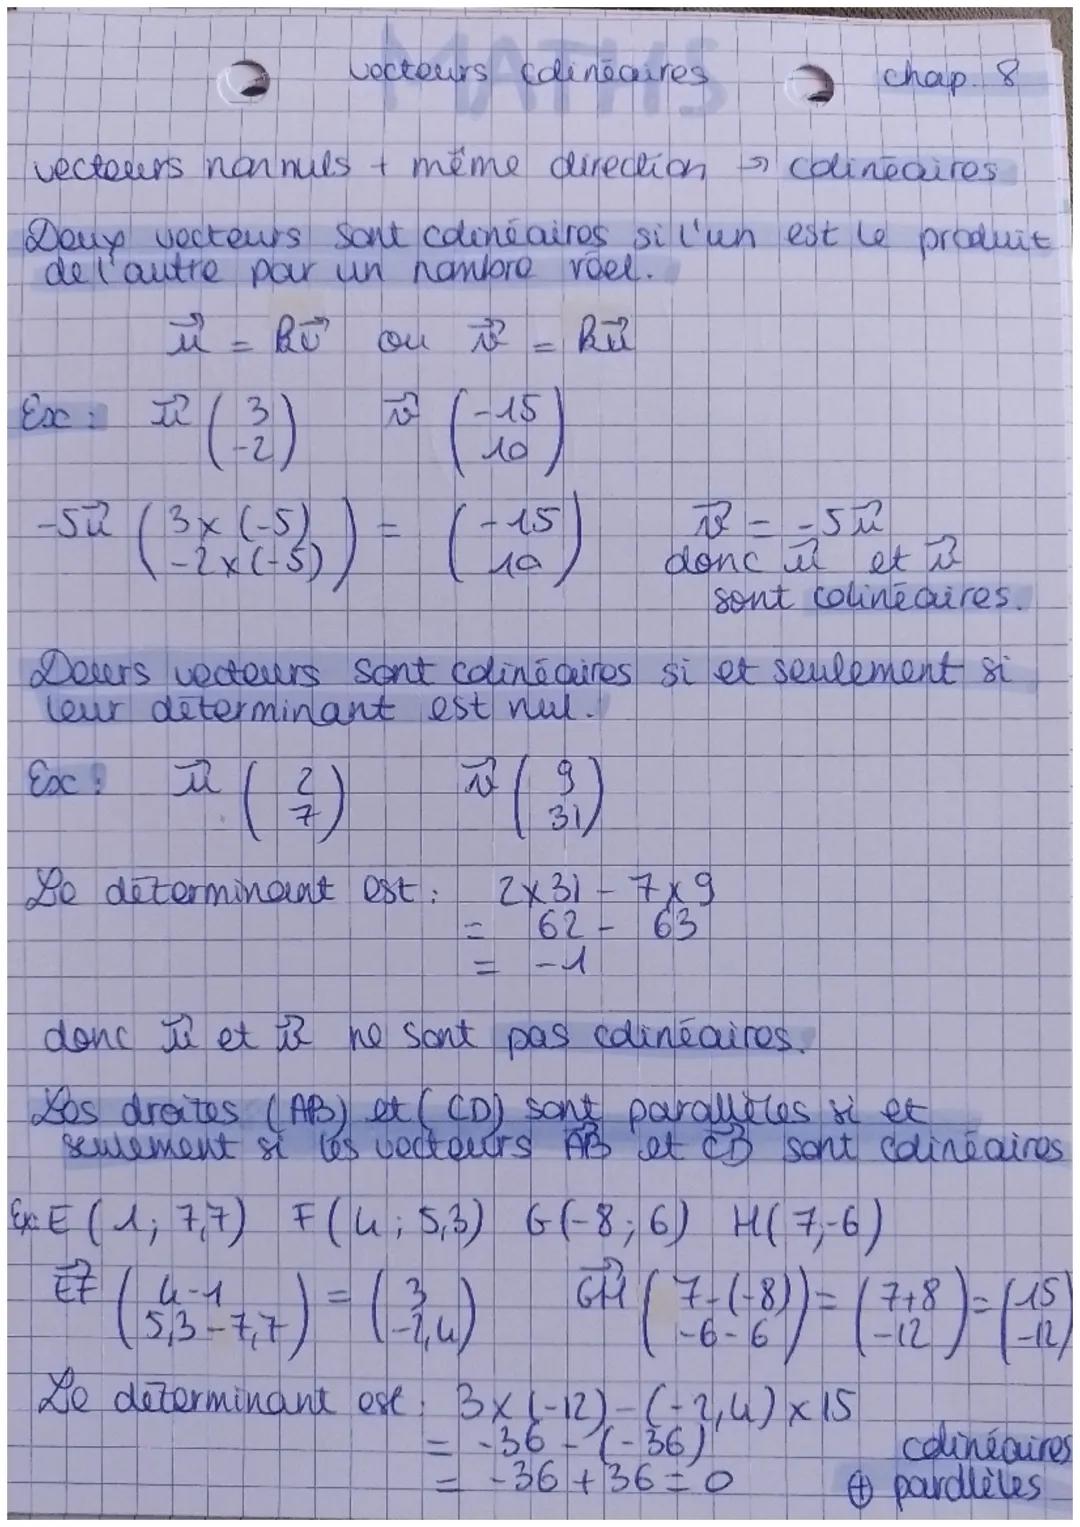 MATHS
vecteurs colinéaires chap. 8
vecteurs non nuls + même direction → colinéaires
Deux vecteurs sont colinéaires si l'un est le produit
de l'autre par un nombre réel.
u⃗ = kv⃗ ou v⃗ = ku⃗
Ex : u⃗ (3 ; -2) v⃗ (-15 ; 10)
-5u⃗ (3×(-5) ; -2×(-5)) = (-15 ; 10) v⃗ = -5u⃗
donc u⃗ et v⃗
sont colinéaires.
vecteurs sont colinéaires si et seulement si
leur déterminant est nul.
Ex : u⃗ (2 ; 7) v⃗ (9 ; 31)
Le déterminant est : 2×31 - 7×9
= 62 - 63
= -1
donc u⃗ et v⃗ ne sont pas colinéaires.
Les droites (AB) et (CD) sont parallèles si et
seulement si les vecteurs AB⃗ et CD⃗ sont colinéaires
Ex: E (1; 7,7) F (4; 5,3) G (-8; 6) H (7;-6)
EF⃗ (4-1 ; 5,3-7,7) = (3 ; -2,4) GH⃗ (7-(-8) ; -6-6) = (7+8 ; -12) = (15 ; -12)
Le déterminant est : 3×(-12)-(-2,4)×15
= -36 - (-36) colinéaires
= -36 + 36 = 0 ⊕ parallèles